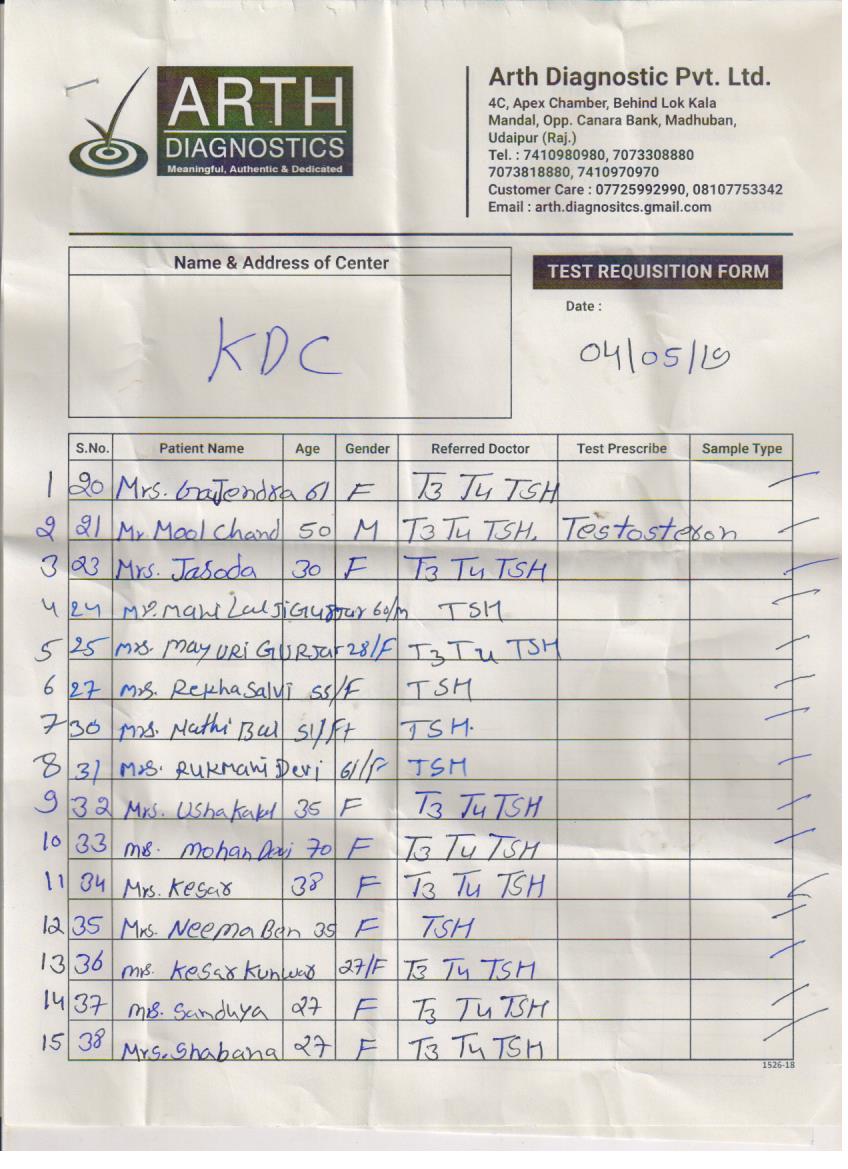 ARTH
DIAGNOSTICS
Meaningful, Authentic & Dedicated
Arth Diagnostic Pvt. Ltd.
4C, Apex Chamber, Behind Lok Kala
Mandal, Opp. Canara Bank, Madhuban,
Udaipur (Raj.)
Tel. : 7410980980, 7073308880
7073818880, 7410970970
Customer Care : 07725992990, 08107753342
Email : arth.diagnositcs.gmail.com
Name & Address of Center
KDC
TEST REQUISITION FORM
Date :
04/05/19
S.No. Patient Name Age Gender Referred Doctor Test Prescribe Sample Type
1 20 Mrs. Gajendra 61 F T3 T4 TSH
2 21 Mr. Mool Chand 50 M T3 T4 TSH. Testosteron
3 23 Mrs. Jasoda 30 F T3 T4 TSH
4 24 Mr. Mani Lal Ji Gurjar 60/m TSH
5 25 Mrs. MAYURI GURJAR 28/F T3 T4 TSH
6 27 Mrs. Rekha Salvi 55/F TSH
7 30 Mrs. Nathi Bai 51/F TSH.
8 31 Mrs. RUKMANI Devi 61/F TSH
9 32 Mrs. Usha 35 F T3 T4 TSH
10 33 Mrs. Mohan Devi 70 F T3 T4 TSH
11 34 Mrs. Kesar 38 F T3 T4 TSH
12 35 Mrs. Neema Ben 35 F TSH
13 36 Mrs. Kesar Kunwar 27/F T3 T4 TSH
14 37 Mrs. Sandhya 27 F T3 T4 TSH
15 38 Mrs. Shabana 27 F T3 T4 TSH
1526-18